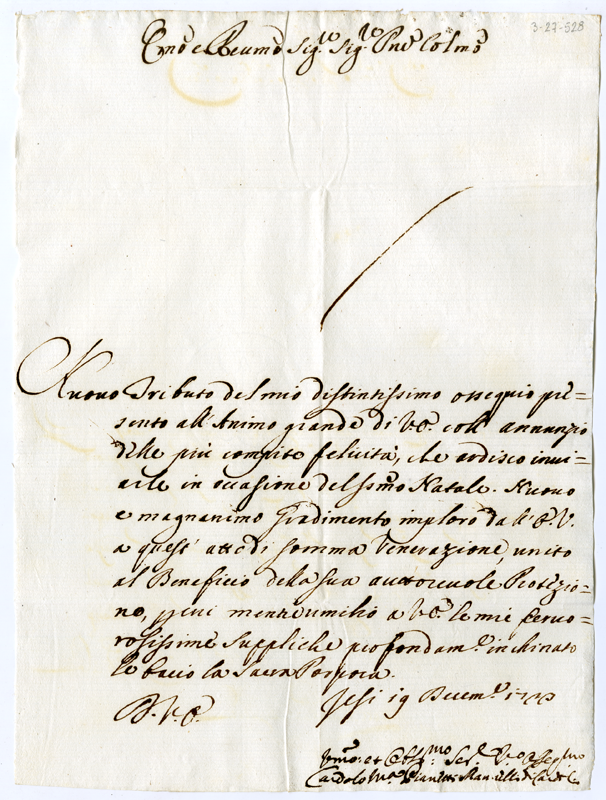 3-27-528
Emo e Reumo Sig.re Sig.re Pne Colmo
Nuovo Tributo del mio distintissimo ossequio pre=
sento all'Animo grande di V.E. coll'annunzio
delle più compite felicità, che ardisco invi=
arle in occasione del Ssmo Natale. Nuovo
e magnanimo Gradimento imploro dall'E.V.
a quest'atto di somma Venerazione, unito
al Beneficio della sua autorevole Protezio=
ne, per cui mentre umilio a V.E. le mie fervo=
rosissime suppliche profondam.te inchinato
le bacio la Sacra Porpora.
D.V.E. Jesi 19 Decem.e
Vmo: et Obb.mo Ser.